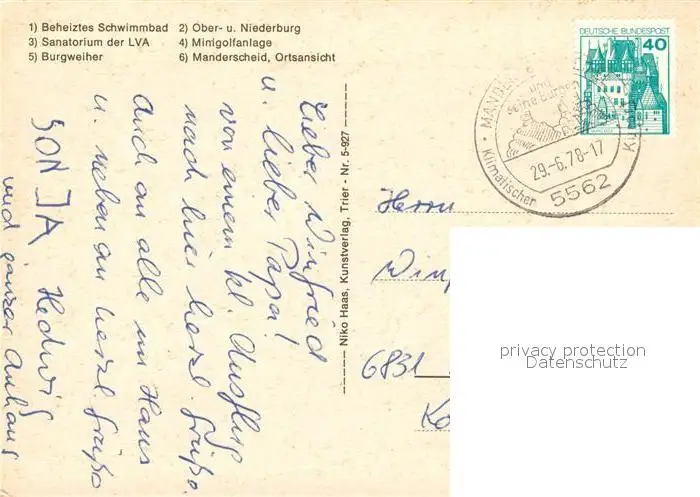 1) Beheiztes Schwimmbad 2) Ober- u. Niederburg
3) Sanatorium der LVA 4) Minigolfanlage
5) Burgweiher 6) Manderscheid, Ortsansicht
DEUTSCHE BUNDESPOST
40
MANDE
und
seine Burgen
29.-6.78-17
Klimatischer
5562
Niko Haas, Kunstverlag, Trier - Nr. 5-927
Lieber Winfried
u. lieber Papa!
von einem kl. Ausflug
nach hier herzl. Grüße.
Auch an alle im Haus
u. neben an herzl. Grüße
SONJA Hedwig
und ganzer Anhang
Herrn
Winf
6831
privacy protection
Datenschutz